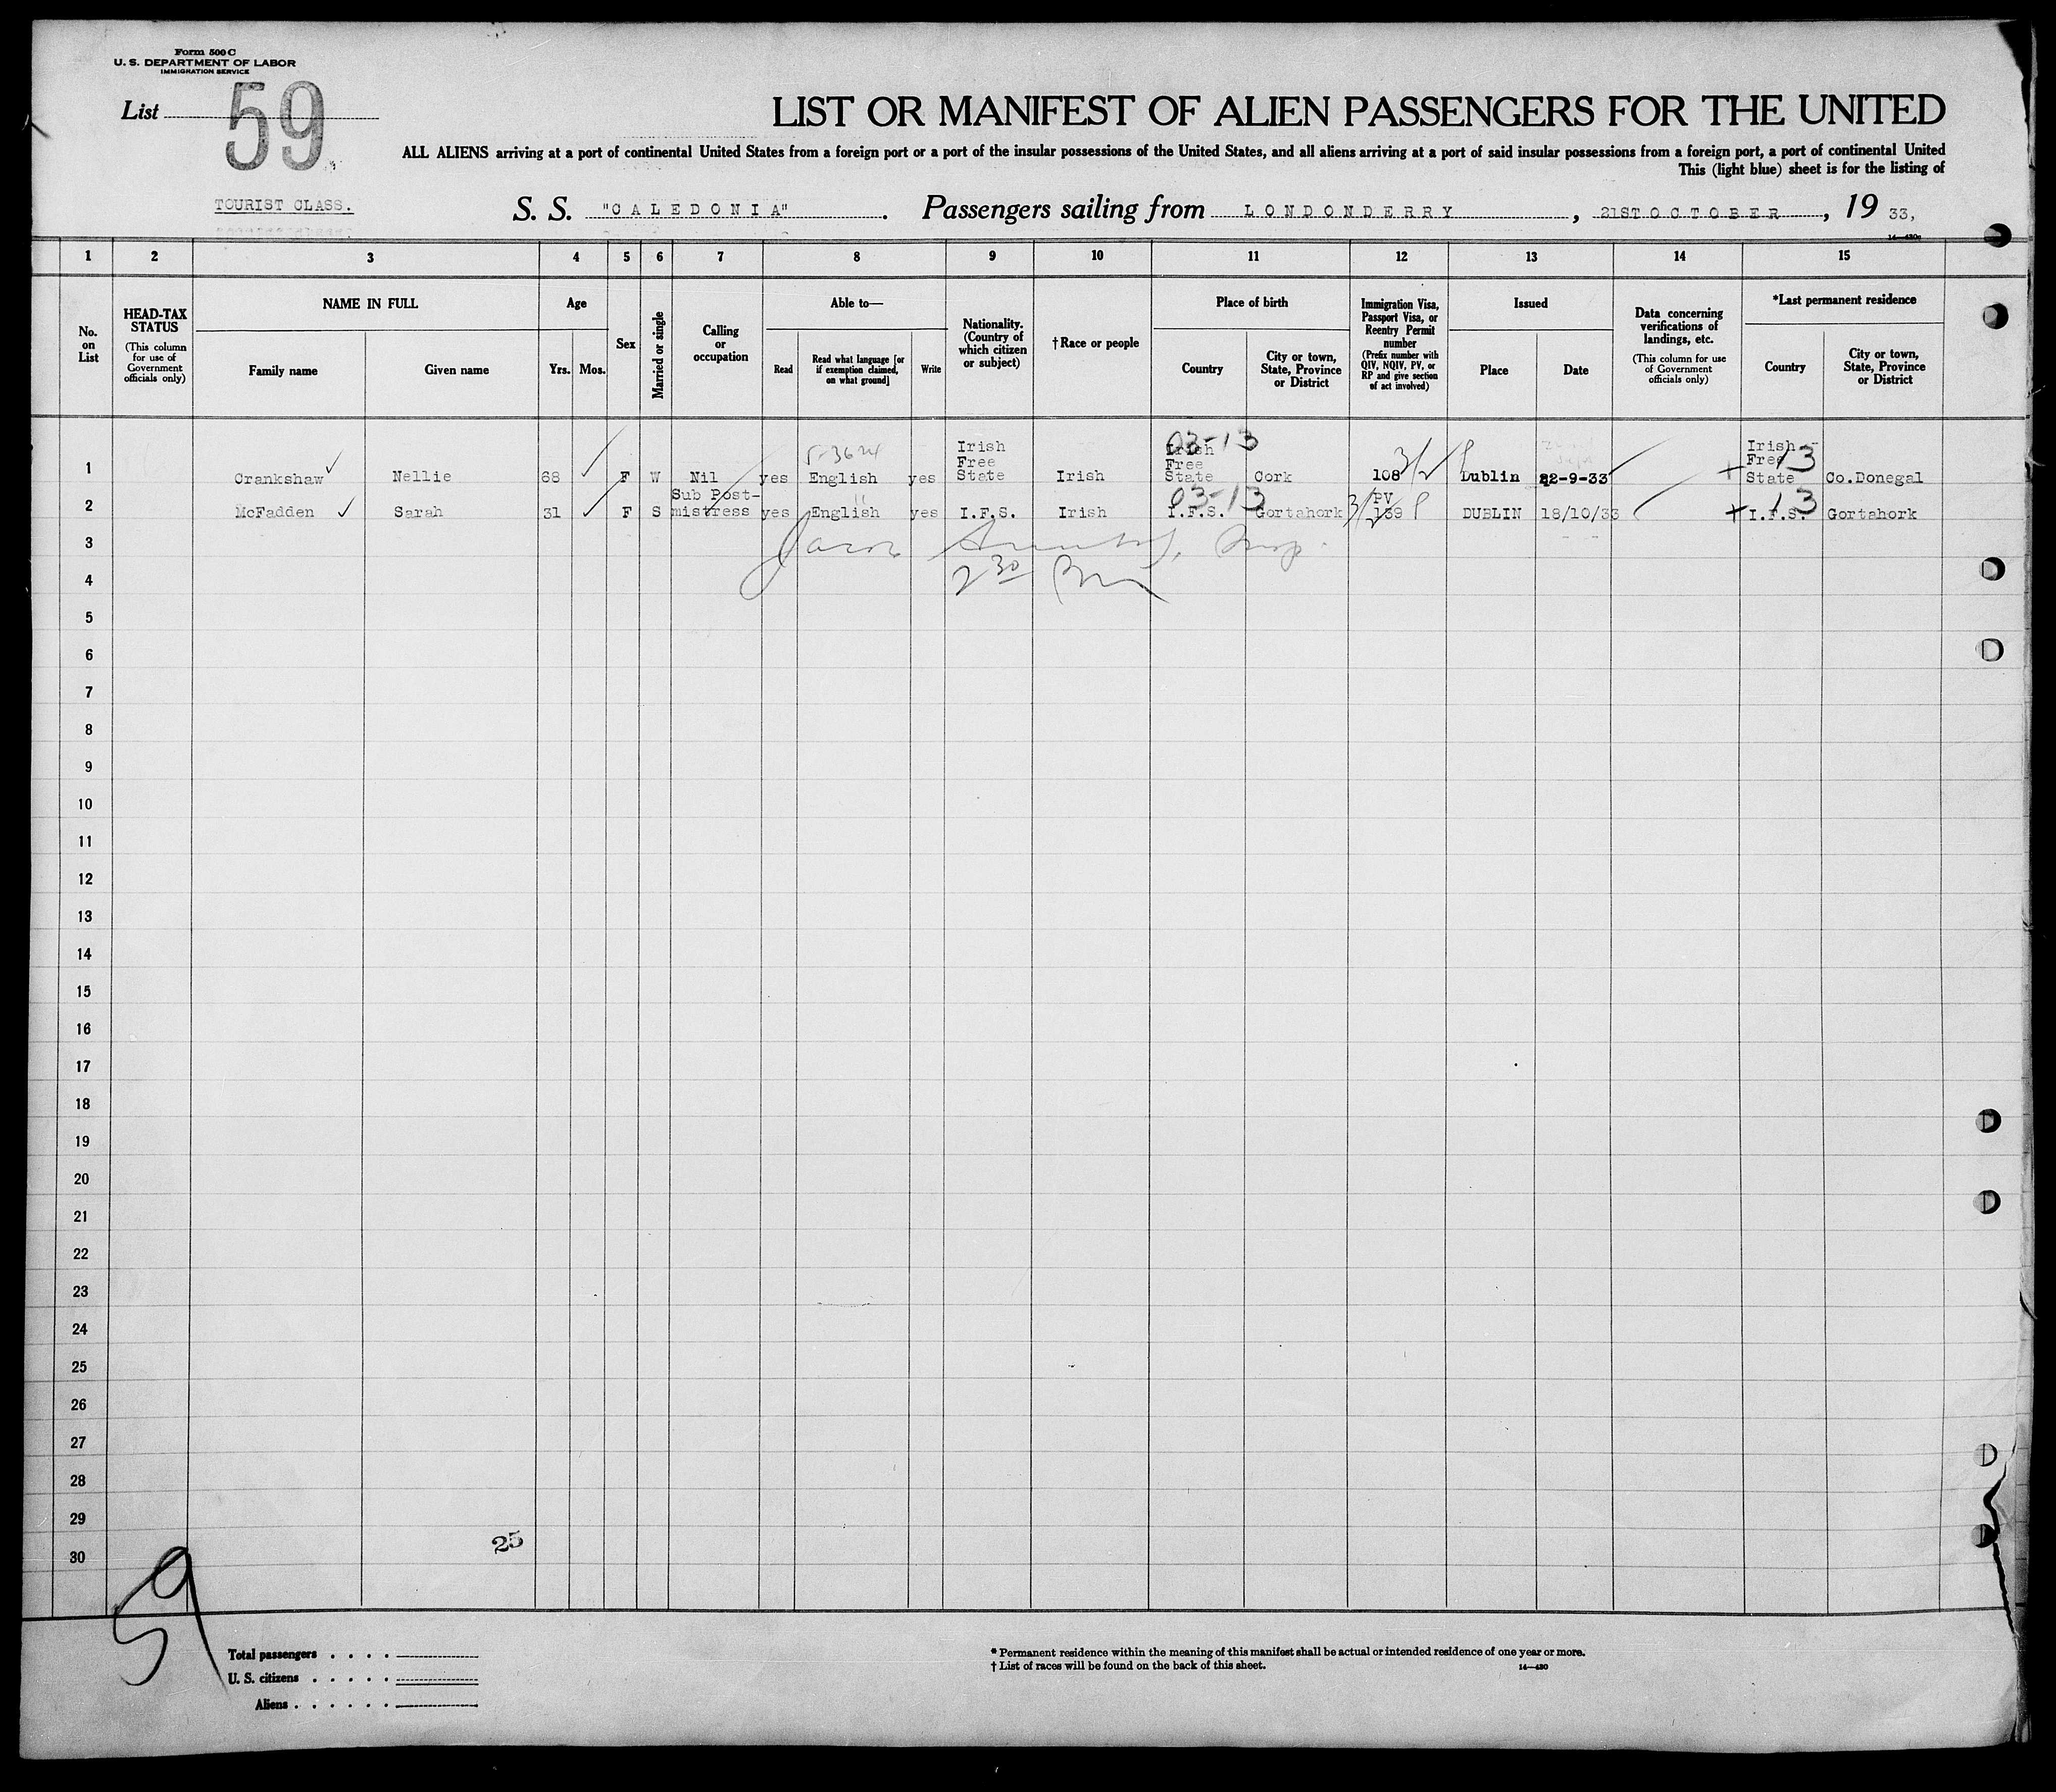 Form 500 C
U. S. DEPARTMENT OF LABOR
IMMIGRATION SERVICE
List 59
LIST OR MANIFEST OF ALIEN PASSENGERS FOR THE UNITED
ALL ALIENS arriving at a port of continental United States from a foreign port or a port of the insular possessions of the United States, and all aliens arriving at a port of said insular possessions from a foreign port, a port of continental United
This (light blue) sheet is for the listing of
TOURIST CLASS.
S. S. "CALEDONIA". Passengers sailing from LONDONDERRY, 21ST OCTOBER, 19 33,
14—430a
1 2 3 4 5 6 7 8 9 10 11 12 13 14 15
No. on List
HEAD-TAX STATUS
(This column for use of Government officials only)
NAME IN FULL
Family name Given name
Age
Yrs. Mos.
Sex
Married or single
Calling or occupation
Able to—
Read
Read what language [or if exemption claimed, on what ground]
Write
Nationality. (Country of which citizen or subject)
† Race or people
Place of birth
Country
City or town, State, Province or District
Immigration Visa, Passport Visa, or Reentry Permit number
(Prefix number with QIV, NQIV, PV, or RP and give section of act involved)
Issued
Place Date
Data concerning verifications of landings, etc.
(This column for use of Government officials only)
*Last permanent residence
Country
City or town, State, Province or District
03-13
1 Crankshaw Nellie 68 F W Nil yes English yes Irish Free State Irish Irish Free State Cork 108 3/2 Dublin 22-9-33 Irish Free State 13 Co.Donegal
03-13
2 McFadden Sarah 31 F S Sub Post-mistress yes English yes I.F.S. Irish I.F.S. Gortahork 3/2 PV 139 DUBLIN 18/10/33 I.F.S. 13 Gortahork
3 Jacob
4 2 30 Pm
5
6
7
8
9
10
11
12
13
14
15
16
17
18
19
20
21
22
23
24
25
26
27
28
29
30
25
59
Total passengers
U. S. citizens
Aliens
* Permanent residence within the meaning of this manifest shall be actual or intended residence of one year or more.
† List of races will be found on the back of this sheet.
14—430